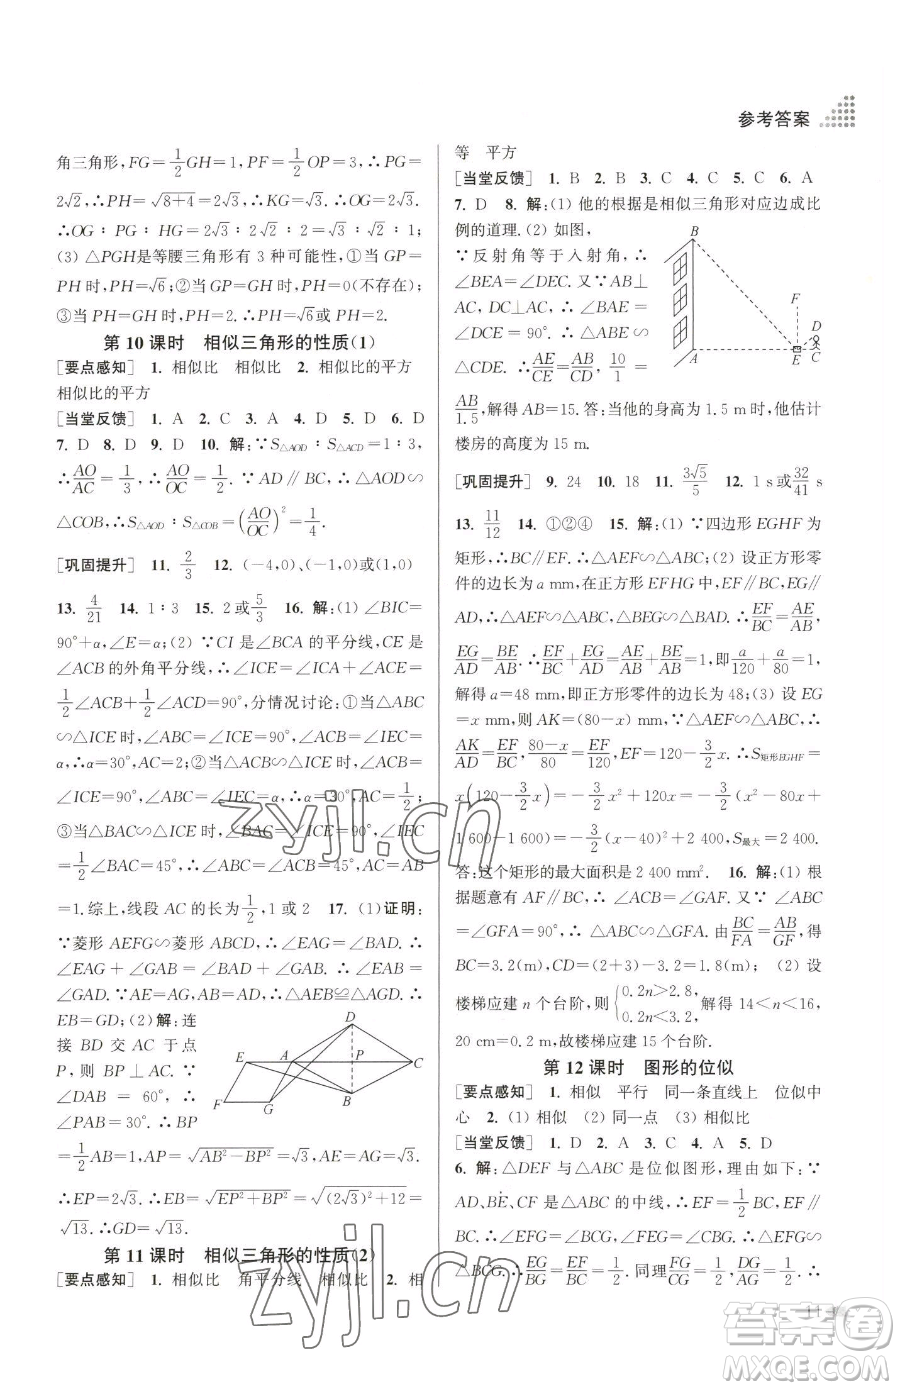 参考答案
角三角形,FG=1/2GH=1,PF=1/2OP=3,∴PG=
2√2,∴PH=√(8+4)=2√3,∴KG=√3.∴OG=2√3.
∴OG∶PG∶HG=2√3∶2√2∶2=√3∶√2∶1;
(3) △PGH是等腰三角形有 3 种可能性,①当 GP=
PH 时,PH=√6;②当 GP=GH 时,PH=0(不存在);
③当 PH=GH 时,PH=2.∴PH=√6或 PH=2.
第 10 课时 相似三角形的性质(1)
[要点感知] 1. 相似比 相似比 2. 相似比的平方
相似比的平方
[当堂反馈] 1. A 2. C 3. A 4. D 5. D 6. D
7. D 8. D 9. D 10. 解:∵S△AOD∶S△ACD=1∶3,
∴AO/AC=1/3,∴AO/OC=1/2.∵AD∥BC,∴△AOD∽
△COB,∴S△AOD∶S△COB=(AO/OC)²=1/4.
[巩固提升] 11. 2/3 12. (-4,0)、(-1,0)或(1,0)
13. 4/21 14. 1∶3 15. 2或5/3 16. 解:(1) ∠BIC=
90°+α,∠E=α;(2) ∵CI 是∠BCA 的平分线,CE 是
∠ACB 的外角平分线,∴∠ICE=∠ICA+∠ACE=
1/2∠ACB+1/2∠ACD=90°,分情况讨论:①当△ABC
∽△ICE 时,∠ABC=∠ICE=90°,∠ACB=∠IEC=
α,∴α=30°,AC=2;②当△ABC∽△ICE 时,∠ACB
=∠ICE=90°,∠ABC=∠IEC=α,∴α=30°,AC=1/2;
③当△BAC∽△ICE 时,∠BAC=∠ICE=90°,∠IEC
=1/2∠BAC=45°,∴∠ABC=∠ACB=45°.∴AC=AB
=1.综上,线段 AC 的长为1/2,1 或 2 17. (1)证明:
∵菱形 AEFG∽菱形 ABCD,∴∠EAG=∠BAD.∴
∠EAG+∠GAB=∠BAD+∠GAB.∴∠EAB=
∠GAD.∵AE=AG,AB=AD,∴△AEB≌△AGD.∴
EB=GD;(2)解:连
接 BD 交 AC 于点
P,则 BP⊥AC.∵
∠DAB=60°,∴
∠PAB=30°.∴BP
D
E
A
P
C
F
G
B
=1/2AB=1,AP=√(AB²-BP²)=√3,AE=AG=√3.
∴EP=2√3.∴EB=√(EP²+BP²)=√((2√3)²+12)=
√13.∴GD=√13.
第 11 课时 相似三角形的性质(2)
[要点感知] 1. 相似比 角平分线 相似比 2. 相
等 平方
[当堂反馈] 1. B 2. B 3. C 4. C 5. C 6. A
7. D 8. 解:(1) 他的根据是相似三角形对应边成比
例的道理.(2) 如图,
∵反射角等于入射角,∴
∠BEA=∠DEC.又∵AB⊥
AC,DC⊥AC,∴∠BAE=
∠DCE=90°.∴△BAE∽△
CDE.∴AE/CE=AB/CD,10/1=
B
F
D
A
E
C
AB/1.5,解得 AB=15.答:当他的身高为 1.5 m时,他估计
楼房的高度为 15 m.
[巩固提升] 9. 24 10. 18 11. 3√5/5 12. 1 s或32/41 s
13. 11/12 14. ①②④ 15. 解:(1) ∵四边形 EGHF 为
矩形,∴BC∥EF.∴△AEF∽△ABC;(2) 设正方形零
件的边长为 a mm,在正方形 EFHG 中,EF∥BC,EG∥
AD,∴△AEF∽△ABC,△BEG∽△BAD.∴EF/BC=AE/AB,
EG/AD=BE/AB.∴EF/BC+EG/AD=AE/AB+BE/AB=1,即a/120+a/80=1,
解得 a=48 mm,即正方形零件的边长为 48;(3) 设 EG
=x mm,则 AK=(80-x) mm,∵△AEF∽△ABC,∴
AK/AD=EF/BC,80-x/80=EF/120,EF=120-3/2x.∴S矩形EGHF=
x(120-3/2x)=-3/2x²+120x=-3/2(x²-80x+
1 600-1 600)=-3/2(x-40)²+2 400,S最大=2 400.
答:这个矩形的最大面积是 2 400 mm². 16. 解:(1) 根
据题意有 AF∥BC,∴∠ACB=∠GAF.又∵∠ABC
=∠GFA=90°,∴△ABC∽△GFA.由BC/FA=AB/GF,得
BC=3.2(m),CD=(2+3)-(1.8+3.2)=0(m); (2) 设
楼梯应建 n 个台阶,则{0.2n>2.8, 0.2n<3.2,解得 14<n<16,
20 cm=0.2 m,故楼梯应建 15 个台阶.
第 12 课时 图形的位似
[要点感知] 1. 相似 平行 同一条直线上 位似中
心 2. (1) 相似 (2) 同一点 (3) 相似比
[当堂反馈] 1. D 2. B 3. D 4. A 5. D
6. 解:△DEF 与△ABC 是位似图形,理由如下:∵
AD、BE、CF 是△ABC 的中线,∴EF=1/2BC,EF∥
BC.∴∠EFG=∠GCB,∠FEG=∠GBC.∴△EFG∽
△BCG.∴EG/BG=EF/BG=1/2.同理FG/CG=1/2,DG/AG=1/2.∴
11
zyjl.cn
zyjl.cn
答案圈
MXQE.COM